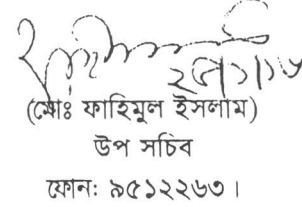 (মোঃ ফাহিমুল ইসলাম)
উপ সচিব
ফোনঃ ৯৫১২২৬৩।